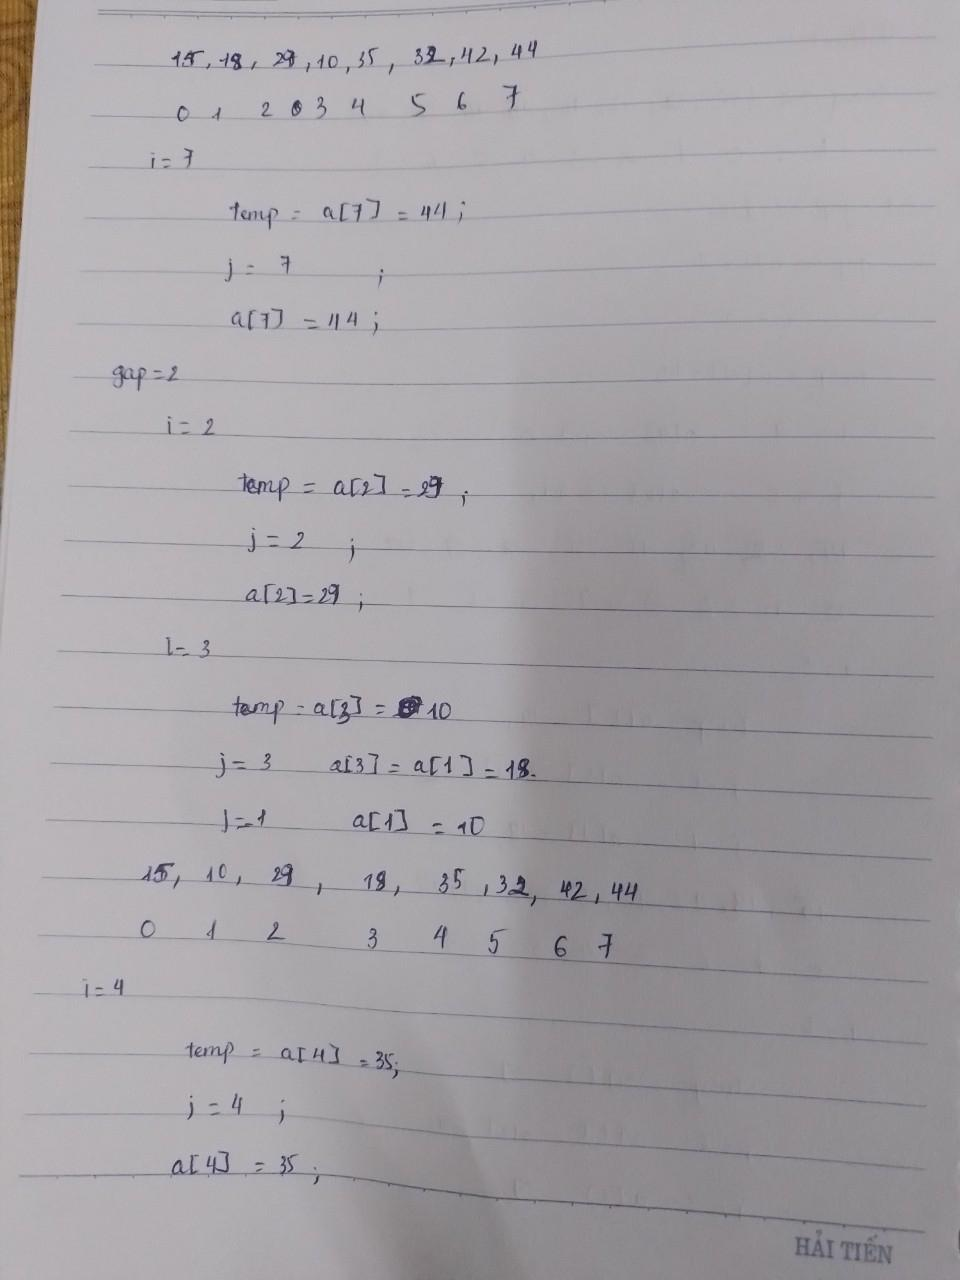 15, 18, 29, 10, 35, 32, 42, 44
0 1 2 3 4 5 6 7
i = 7
temp = a[7] = 44;
j = 7 ;
a[7] = 44;
gap = 2
i = 2
temp = a[2] = 29;
j = 2 ;
a[2] = 29;
i = 3
temp = a[3] = 10
j = 3 a[3] = a[1] = 18.
j = 1 a[1] = 10
15, 10, 29, 18, 35, 32, 42, 44
0 1 2 3 4 5 6 7
i = 4
temp = a[4] = 35;
j = 4 ;
a[4] = 35;
HẢI TIẾN